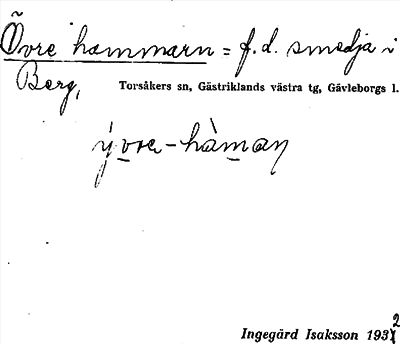 Övre hammarn = f.d. smedja i
Berg, Torsåkers sn, Gästriklands västra tg, Gävleborgs l.
ý vre - hàmaṇ
Ingegärd Isaksson 1932